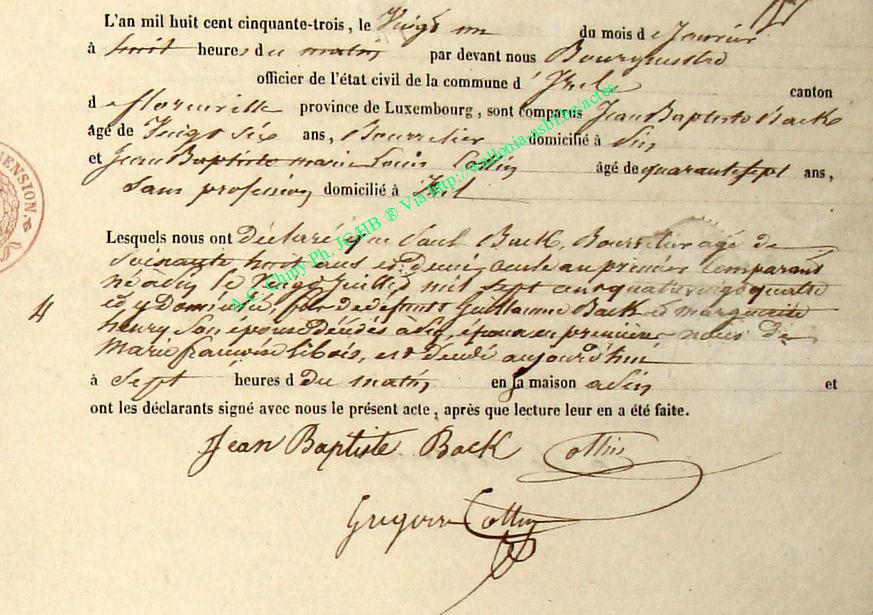 L'an mil huit cent cinquante-trois, le Vingt un du mois de Janvier
à huit heures du matin par devant nous Bourgmestre
officier de l'état civil de la commune d'Izel canton
de florenville province de Luxembourg, sont comparus Jean Baptiste Back
âgé de Vingt six ans, Bourrelier domicilié à Pin
et Jean Baptiste marie Louis Collin âgé de quarante sept ans,
Sans profession domicilié à Izel
Lesquels nous ont déclaré que Paul Back, Bourrelier agé de
Soixante huit ans et demi, oncle au premier Comparant
né à Pin le Vingt Juillet mil sept cent quatre vingt quatre
et y Domicilié, fils de défunts Guillaume Back et marguerite
henry Son épouse Décédés à Pin, époux en premières noces de
Marie françoise Libois, est décédé aujourd'hui
à Sept heures d du matin en sa maison à Pin et
ont les déclarants signé avec nous le présent acte, après que lecture leur en a été faite.
4
Jean Baptiste Back Collin
Grégoire Collin
A.C. Chiny Ph. JG-HB ® Via http://wallonia-asbl.be/actes
MENSION.